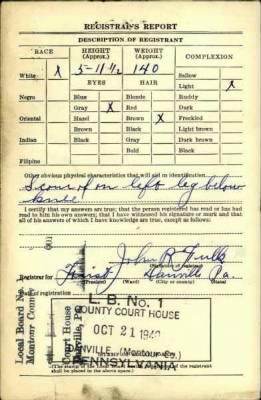 REGISTRAR'S REPORT
DESCRIPTION OF REGISTRANT
RACE HEIGHT (Approx.) WEIGHT (Approx.) COMPLEXION
White X 5-11½ 140 Sallow
EYES HAIR Light X
Negro Blue Blonde Ruddy
Gray X Red Dark
Oriental Hazel Brown X Freckled
Brown Black Light brown
Indian Black Gray Dark brown
Bald Black
Filipino
Other obvious physical characteristics that will aid in identification
on left leg below
knee
I certify that my answers are true; that the person registered has read or has had
read to him his own answers; that I have witnessed his signature or mark and that
all of his answers of which I have knowledge are true, except as follows:
John R
Registrar for First Danville Pa.
(Precinct) (Ward) (City or county) (State)
Local Board No. 1
Montour County
Court House
Danville, Pa.
L. B. No. 1
COUNTY COURT HOUSE
OCT 21 1942
DANVILLE (Montour Co.)
PENNSYLVANIA
shall be placed in the above space.)